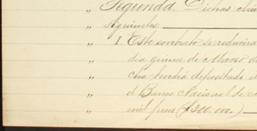 „ Segunda Dichas
„ siguientes
„ 1. Este contrato se reducira
„ dia quince de Marzo de
„ cha tendrá depositada e
„ el Banco Nacional de
„ mil pesos ($300,000.)
„